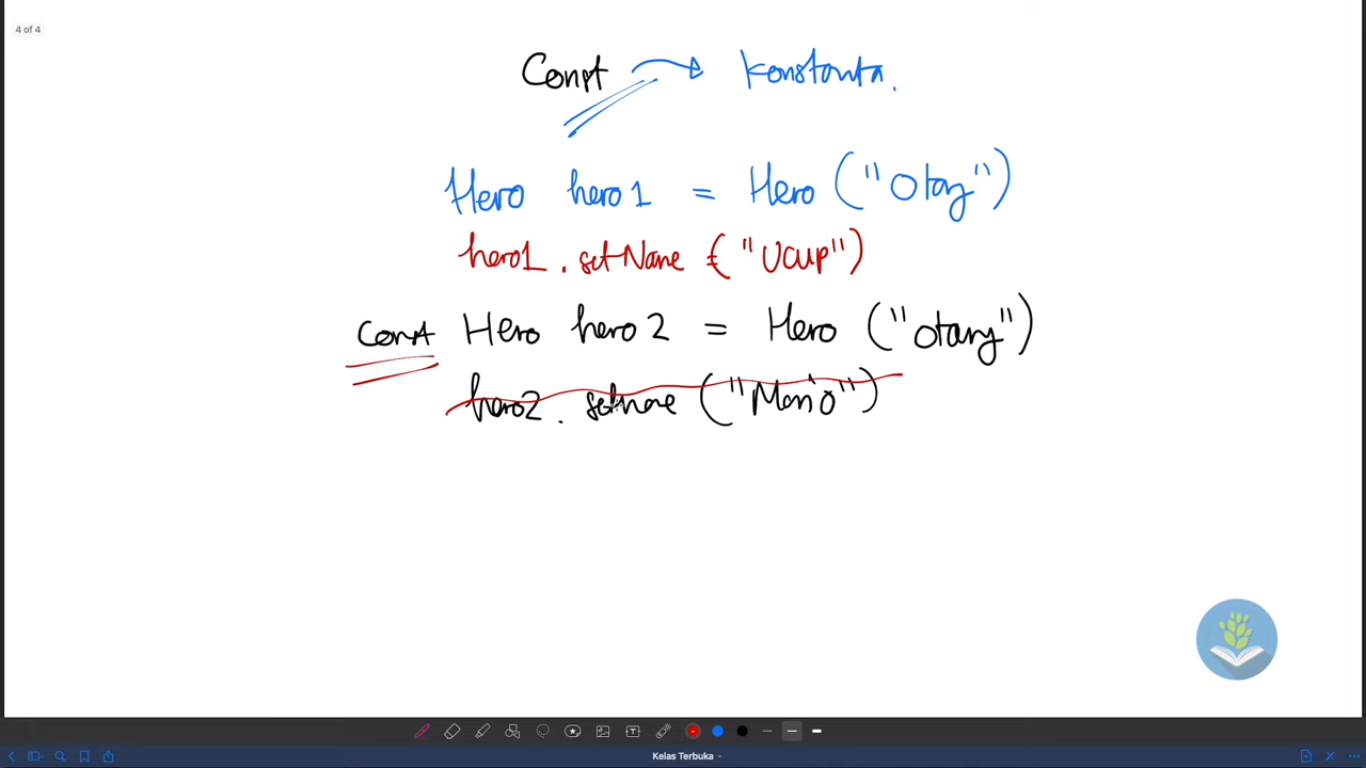 4 of 4
Const → konstanta.
Hero hero1 = Hero ("Otong")
hero1.setName ("Ucup")
Const Hero hero2 = Hero ("otong")
hero2.setname ("Mario")
Kelas Terbuka